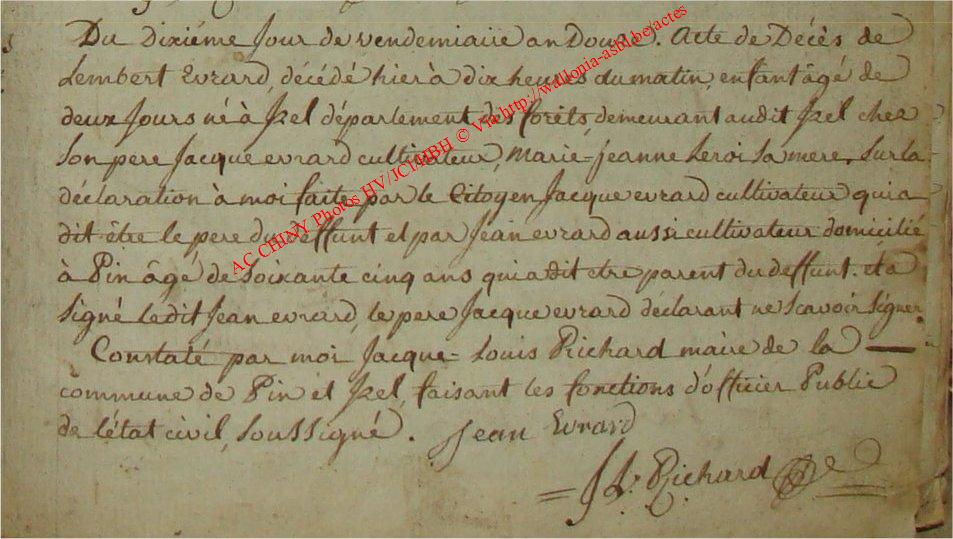 Du Dixiéme Jour de vendemiaire an Douze. Acte de Décès de
Lembert Evrard, décédé hier à dix heures du matin, enfant âgé de
deux Jours né à Izel département des forêts, demeurant audit Izel chez
Son pere Jacque evrard cultivateur, Marie-jeanne Leroi Sa mere, Sur la
déclaration à moi faite par le Citoyen Jacque evrard cultivateur qui a
dit être le pere du deffunt et par Jean evrard aussi cultivateur domicilié
à Pin âgé de Soixante cinq ans qui a dit etre parent du deffunt. et a
Signé ledit Jean evrard, le pere Jacque evrard déclarant ne Scavoir Signer.
Constaté par moi Jacque-Louis Richard maire de la
commune de Pin et Izel, faisant les fonctions d'officier Public
de l'état civil, Soussigné. Jean Evrard
JL. Richard
AC CHINY Photos HV/JCI/HBH © Via http://wallonia-asbl.be/actes